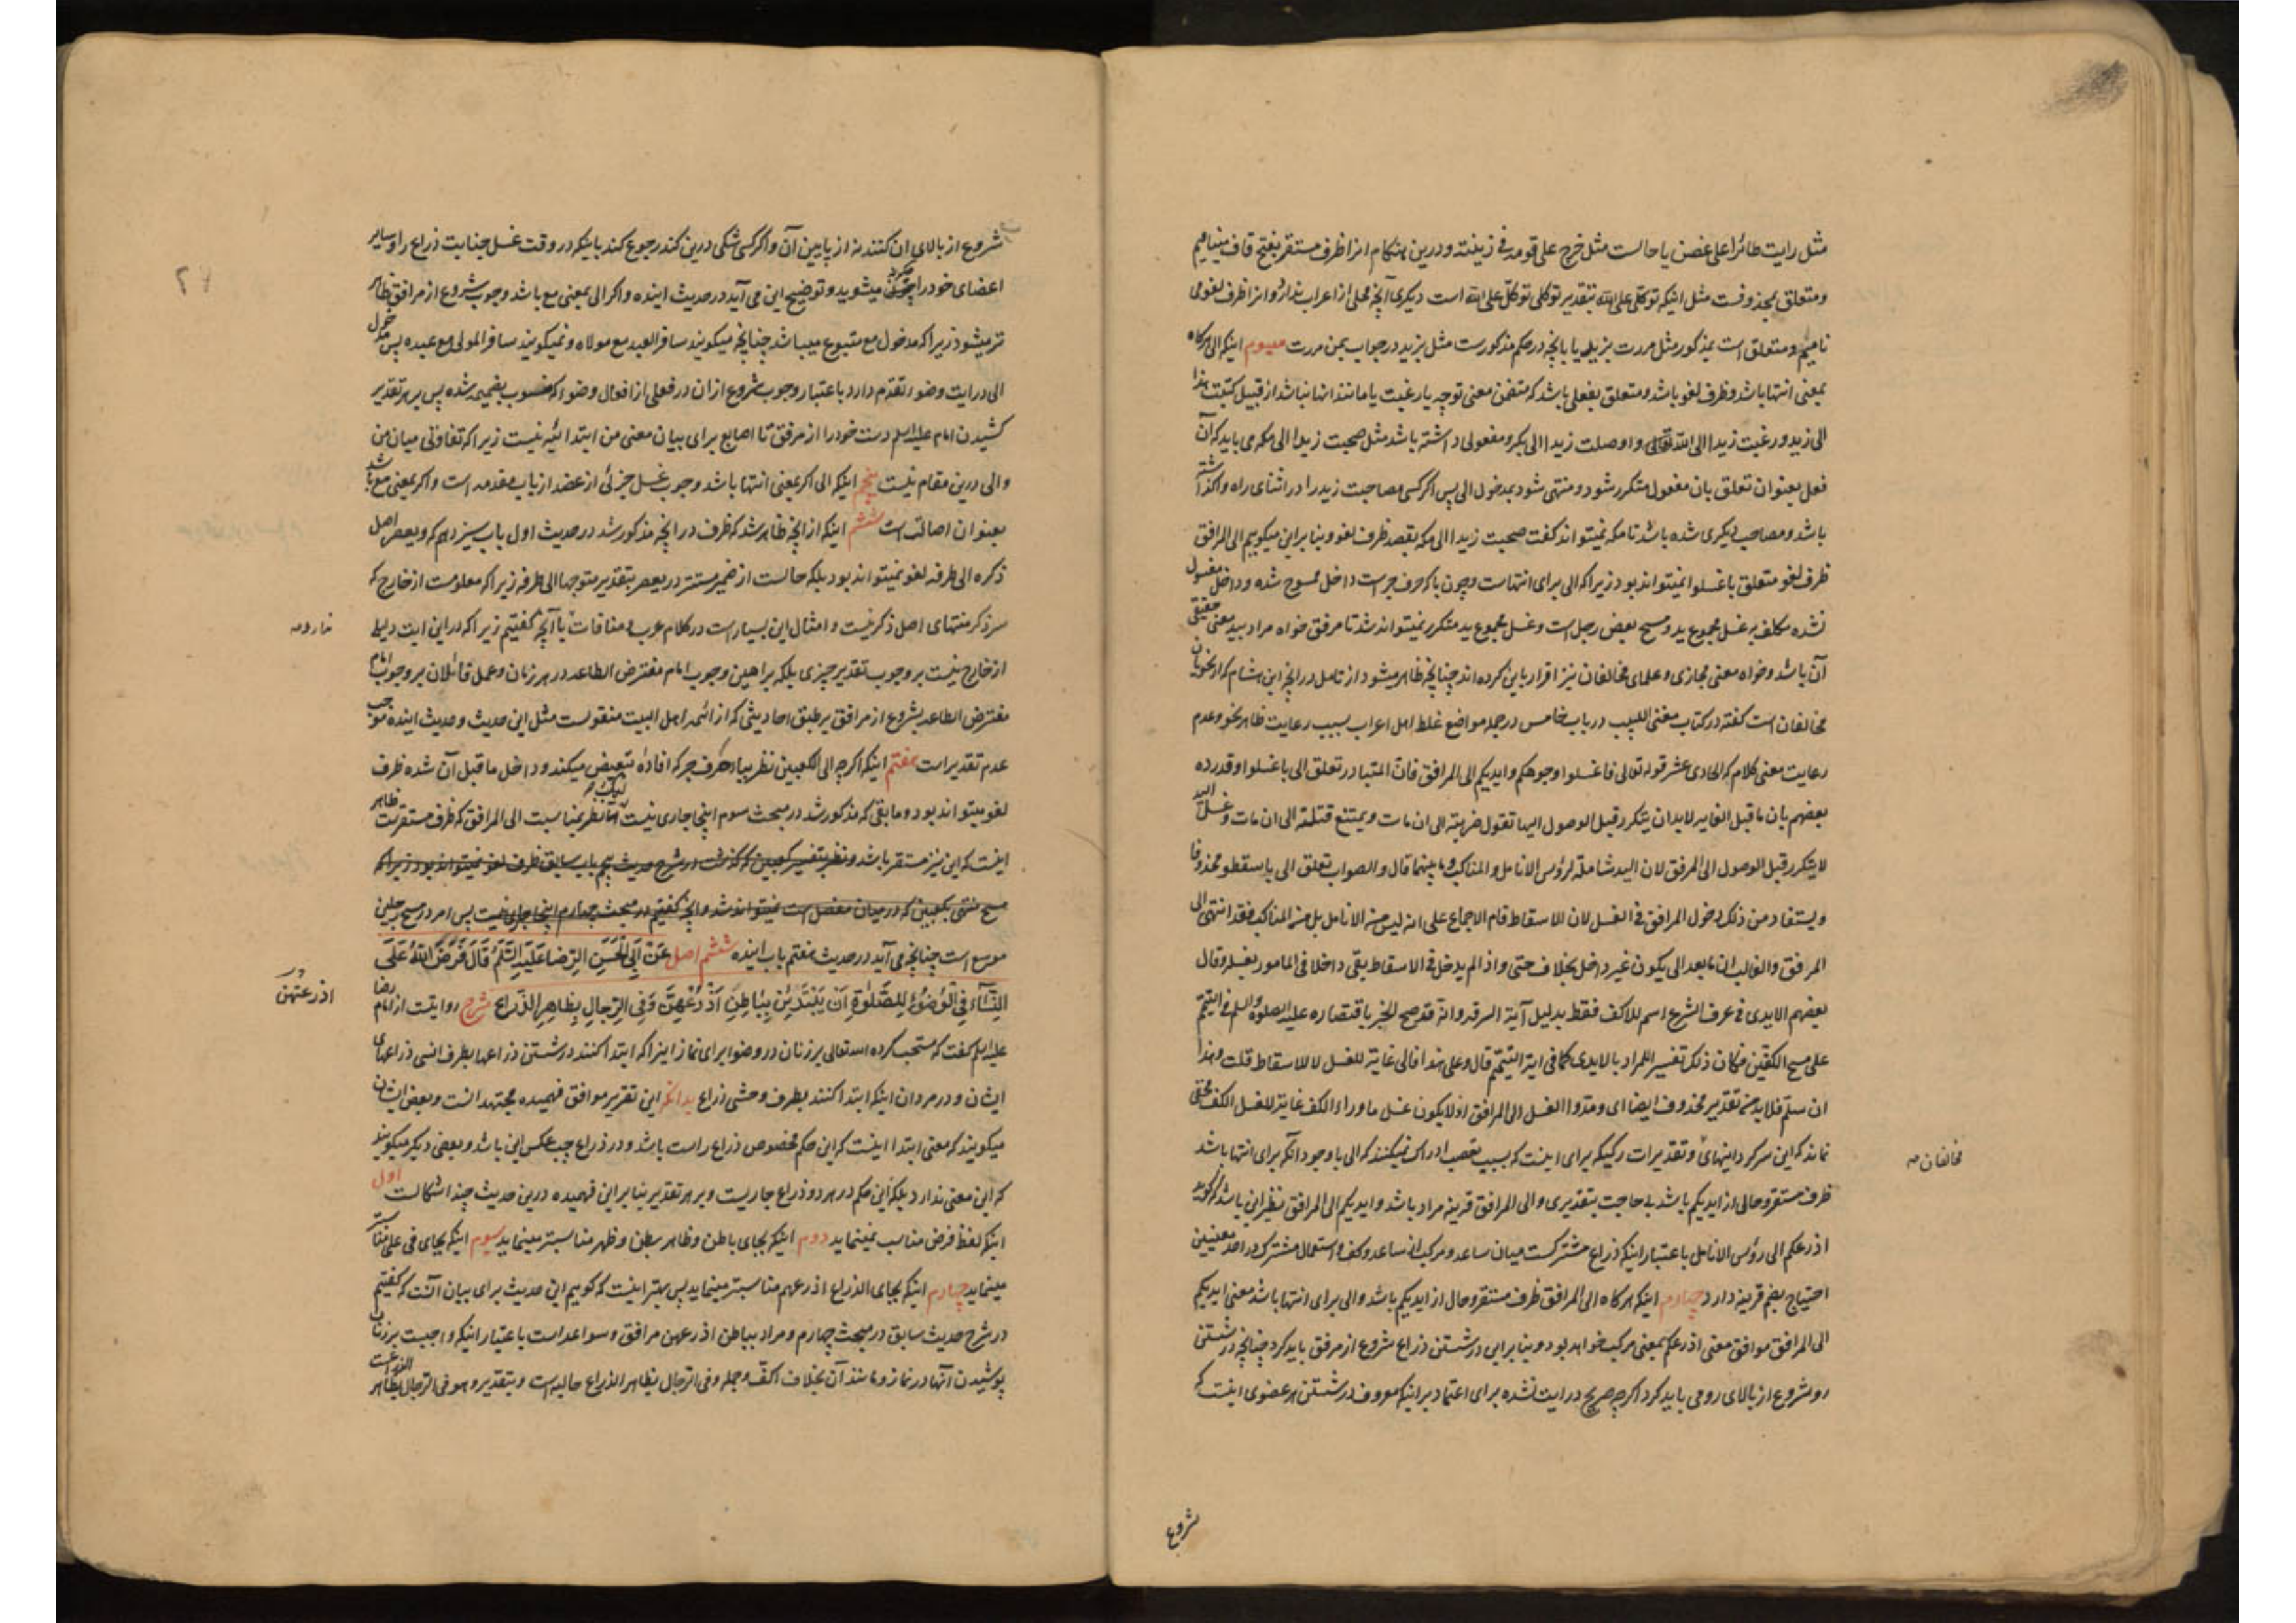 مثل رایت طائرا علی غصن یا حالست مثل خرج علی قومه فی زینته و درین هنکام انرا ظرف مستقر بفتح قاف مینامیم
و متعلق بمحذوفست مثل اینکه توکلی علی الله بتقدیر توکلی توکل علی الله است دیکری آنچه محلی از اعراب ندارد و انرا ظرف لغو می
نامیم و متعلق است بمذکور مثل مررت بزید یا بانچه در حکم مذکورست مثل بزید در جواب بمن مررت سیوم اینکه الی هرکاه
بمعنی انتها باشد و ظرف لغو باشد و متعلق بفعلی باشد که متضمن معنی توجه یا رغبت یا مانند انها نباشد از قبیل کتبت هذا
الی زید و رغبت زیدا الی الله تعالی و اوصلت زیدا الی بکر و مفعولی داشته باشد مثل صحبت زیدا الی مکه می باید که آن
فعل بعنوان تعلق بان مفعول متکرر شود و منتهی شود بمدخول الی پس اکر کسی مصاحبت زید را در اثنای راه واکذاشته
باشد و مصاحب دیکری شده باشد تا مکه نمیتواند کفت صحبت زیدا الی مکه بقصد ظرف لغو و بنا براین میکوییم الی المرافق
ظرف لغو متعلق باغسلوا نمیتواند بود زیرا که الی برای انتهاست و چون با که حرف جرست داخل ممسوح شده و داخل مغسول
نشده مکلف به غسل مجموع ید و مسح بعض رجل است و غسل مجموع ید متکرر نمیتواند شد تا مرفق خواه مراد بید معنی حقیقی
آن باشد و خواه معنی مجازی و علمای مخالفان نیز اقرار باین کرده اند چنانچه ظاهر میشود از تامل در انچه ابن هشام که از نحویان
مخالفان است کفته در کتاب مغنی اللبیب در باب خامس در جمله مواضع غلط اهل اعراب بسبب رعایت ظاهر نحو و عدم
رعایت معنی کلام که الحادی عشر قوله تعالی فاغسلوا وجوهکم و ایدیکم الی المرافق فان المتبادر تعلق الی باغسلوا و قد رده
بعضهم بان ما قبل الغایه لابد ان یتکرر قبل الوصول الیها تقول ضربته الی ان مات و یمتنع قتلته الی ان مات و غسل الید
لا یتکرر قبل الوصول الی المرفق لان الید شاملة لرؤس الانامل و المناکب و ما بینهما قال و الصواب تعلق الی باسقطوا محذوفا
و یستفاد من ذلک دخول المرافق فی الغسل لان الاسقاط قام الاجماع علی انه لیس من الانامل بل من المناکب و قد انتهی الی
المرفق و الغالب ان ما بعد الی یکون غیر داخل بخلاف حتی و اذا لم یدخل فی الاسقاط بقی داخلا فی المامور بغسله و قال
بعضهم الایدی فی عرف الشرع اسم للاکف فقط بدلیل آیة السرقه و انه قد صح الخبر باقتصاره علیه الصلوة و السلم فی التیمم
علی مسح الکفین فکان ذلک تفسیرا للمراد بالایدی کما فی ایة التیمم قال و علی هذا فالی غایة للغسل لا للاسقاط قلت و هذا
ان سلم فلابد من تقدیر محذوف ایضا ای و مدوا الغسل الی المرافق اذ لا یکون غسل ما وراء الکف غایة لغسل الکف مخفی
نماند که این سرکردانیها و تقدیرات رکیکه برای اینست که بسبب تعصب ادراک نمیکنند که الی با وجود آنکه برای انتها باشد
مخالفان صه
ظرف مستقر و حالی از ایدیکم باشد بی حاجت بتقدیری و الی المرافق قرینه مراد باشد و ایدیکم الی المرافق نظیر این باشد که کوید
اذرعکم الی رؤس الانامل باعتبار اینکه ذراع مشترکست میان ساعد و مرکب از ساعد و کف و استعمال مشترک در احد معنیین
احتیاج بضم قرینه دارد چهارم اینکه هرکاه الی المرافق ظرف مستقر و حال از ایدیکم باشد و الی برای انتها باشد معنی ایدیکم
الی المرافق موافق معنی اذرعکم بمعنی مرکب خواهد بود و بنا براین در شستن ذراع شروع از مرفق باید کرد چنانچه در شستن
رو شروع از بالای رو می باید کرد اکرچه صریح در ایت نشده برای اعتماد بر اینکه معروف در شستن هر عضوی اینست که
شروع
شروع از بالای ان کنند نه از پایین آن و اکر کسی شکی درین کند رجوع کند باینکه در وقت غسل جنابت ذراع را و سایر
اعضای خود را چون میشوید و توضیح این می آید در حدیث اینده و اکر الی بمعنی مع باشد وجوب شروع از مرافق ظاهر
تر میشود زیرا که مدخول مع متبوع میباشد چنانچه میکویند سافر العبد مع مولاه و نمیکویند سافر المولی مع عبده پس مدخول
الی در ایت وضو تقدم دارد باعتبار وجوب شروع از ان در فعلی از افعال وضو که منسوب بضمیمه شده پس بر هر تقدیر
کشیدن امام علیه السلم دست خود را از مرفق تا اصابع برای بیان معنی من ابتدائیه نیست زیرا که تفاوتی میان من
و الی درین مقام نیست پنجم اینکه الی اکر بمعنی انتها باشد وجوب غسل جزئی از عضد از باب مقدمه است و اکر بمعنی مع باشد
بعنوان اصالت است ششم اینکه از انچه ظاهر شد که ظرف در انچه مذکور شد در حدیث اول باب سیزدهم که و یعصر اصل
ذکره الی طرفه لغو نمیتواند بود بلکه حالست از ضمیر مستتر در یعصر بتقدیر متوجها الی طرفه زیرا که معلومست از خارج که
سر ذکر منتهای اصل ذکر نیست و امثال این بسیار است در کلام عرب و منافات با آنچه کفتیم زیرا که در این ایت دلیلی
ندارد صه
از خارج نیست بر وجوب تقدیر چیزی بلکه براهین وجوب امام مفترض الطاعه در هر زمان و عمل قائلان بر وجوب امام
مفترض الطاعه بشروع از مرافق بر طبق احادیثی که از ائمه اهل البیت منقولست مثل این حدیث و حدیث اینده موجب
عدم تقدیر است هفتم اینکه اکرچه الی الکعبین نظر بباء حرف جر که افاده تبعیض میکند و داخل ما قبل آن شده ظرف
لغو میتواند بود و ما بقی که مذکور شد در مبحث سوم اینجا جاری نیست لیکن نظر بمناسبت الی المرافق که ظرف مستقرست ظاهر
اینست که این نیز مستقر باشد و نظر بتفسیر کعبین که کذشت در شرح حدیث پنجم باب سابق ظرف لغو نمیتواند بود زیرا که
مسح منتهی بکعبین که در میان مفصل است نمیتواند شد و انچه کفتیم در مبحث چهارم اینجا جاری نیست پس امر در مسح رجلین
موسع است چنانچه می آید در حدیث هفتم باب اینده ششم اصل عَنْ أَبِي الْحَسَنِ الرِّضَا عَلَيْهِ السَّلَمُ قَالَ فَرَضَ اللَّهُ عَلَى
النِّسَاءِ فِي الْوُضُوءِ لِلصَّلٰوةِ أَنْ يَبْتَدِئْنَ بِبَاطِنِ أَذْرُعِهِنَّ وَفِي الرِّجَالِ بِظَاهِرِ الذِّرَاعِ شرح روایتست از امام رضا
اذرعتهن
علیه السلم کفت که مستحب کرده الله تعالی بر زنان در وضو برای نماز اینرا که ابتدا کنند در شستن ذراعها بطرف انسی ذراعهای
ایشان و در مردان اینکه ابتدا کنند بطرف وحشی ذراع بدانکه این تقریر موافق فهمیده مجتهدانست و بعض ایشان
میکویند که معنی ابتدا اینست که این حکم مخصوص ذراع راست باشد و در ذراع چپ عکس این باشد و بعضی دیکر میکویند
که این معنی ندارد بلکه این حکم در هر دو ذراع جاریست و بر هر تقدیر بنا براین فهمیده درین حدیث چند اشکالست اول
اینکه لفظ فرض مناسب نمینماید دوم اینکه بجای باطن و ظاهر بطن و ظهر مناسبتر مینماید سیوم اینکه بجای فی علی مناسبتر
مینماید چهارم اینکه بجای الذراع اذرعهم مناسبتر مینماید پس بهتر اینست که کوییم این حدیث برای بیان آنست که کفتیم
در شرح حدیث سابق در مبحث چهارم و مراد بباطن اذرعهن مرافق و سواعد است باعتبار اینکه واجبست بر زنان
پوشیدن آنها در نماز و مانند آن بخلاف اکف و جمله و فی الرجال بظاهر الذراع حالیه است و بتقدیر و هو فی الرجال بظاهر الذراعست